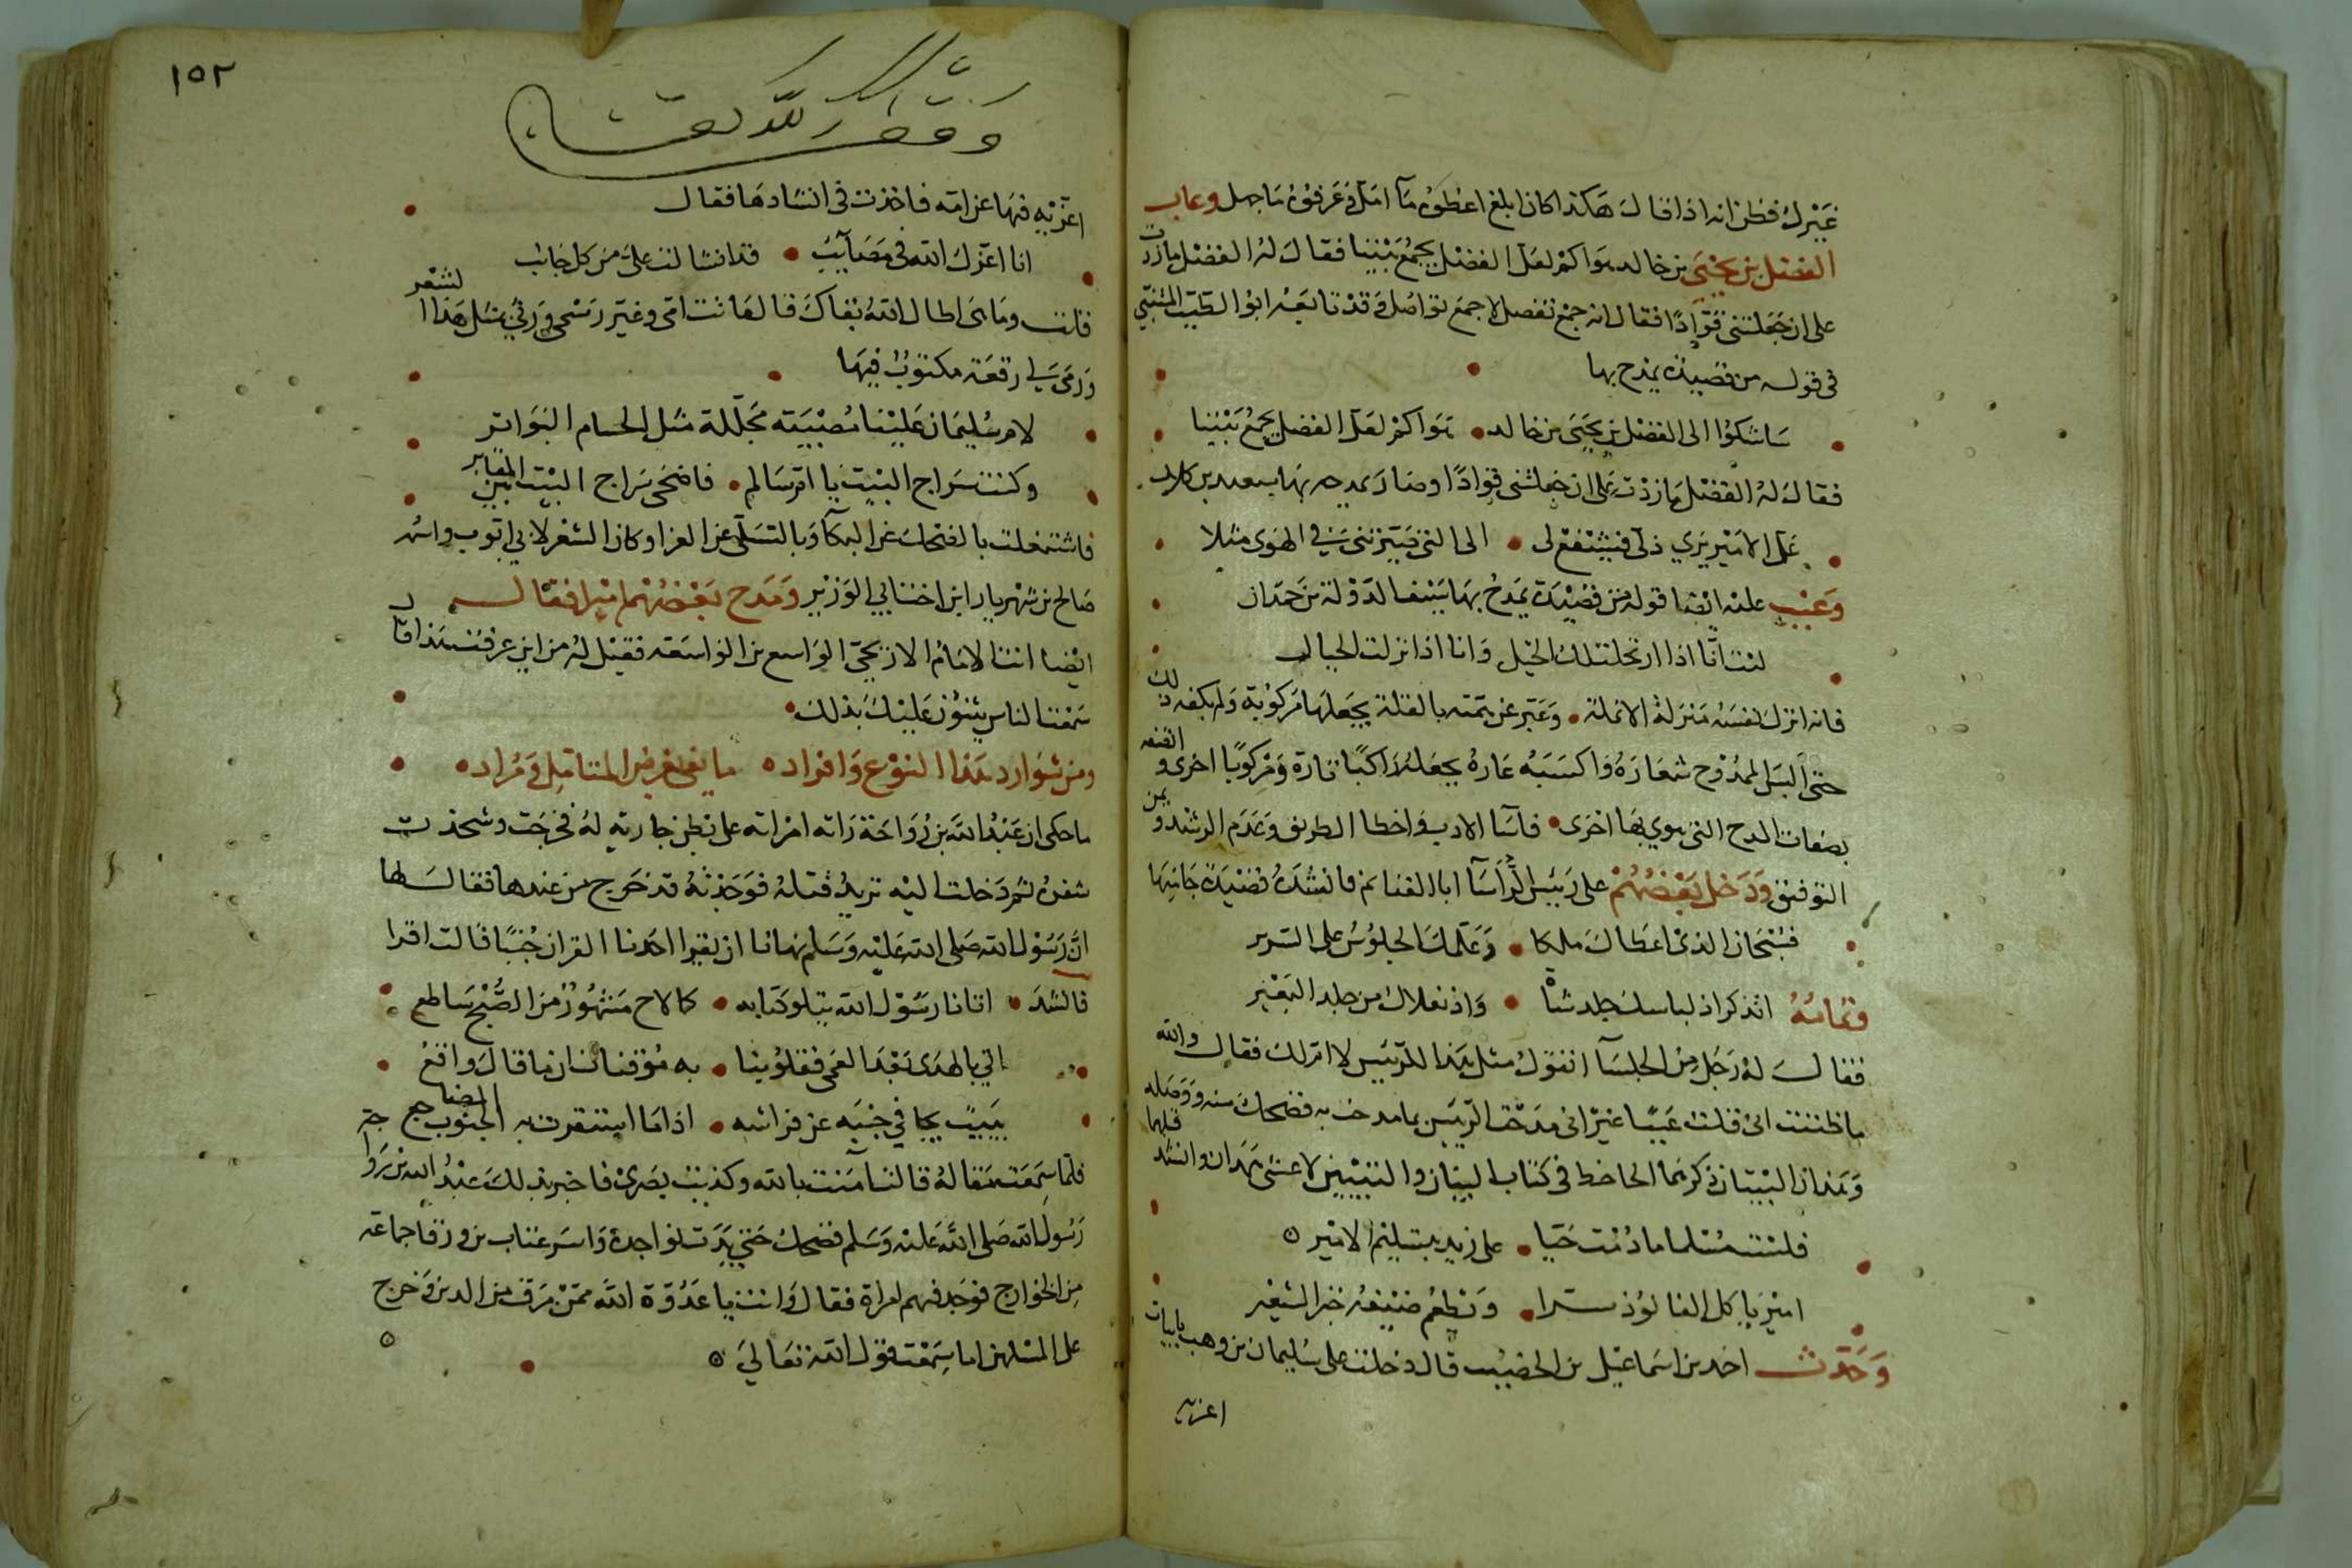 غيرك فظن انه اذا قال هكذا كان ابلغ اعطوه ما امل وعرفوه ما جهل وعاب
الفضل بن يحيى بن خالد هواكم لعل الفضل يجمع بيننا فقال له الفضل ما زدت
على ان جعلتني قوادا فقال انه جمع تفضل لا جمع تواصل وقد تابعه ابو الطيب المتنبي
في قوله من قصيدة يمدح بها
ساشكوا الى الفضل بن يحيى بن خالد هواكم لعل الفضل يجمع بيننا
فقال له الفضل ما زدت على ان جعلتني قوادا وصار يمدحه بها سعيد بن كلاب
عل الامير يرى ذلي فيشفع لي الى التي صيرتني في الهوى مثلا
وعيب عليه ايضا قوله من قصيدة يمدح بها سيف الدولة بن حمدان
ليت انا اذا ارتحلت لك الخيل وانا اذا نزلت الخيال
فانه انزل نفسه منزلة الانملة وعبر عن همته بالقلة يجعلها مركوبة ولم يكفه ذلك
حتى البس الممدوح شعاره واكسبه عاره يجعله راكبا تارة ومركوبا اخرى
بصفات المدح التي يهوي بها اخرى فاسا الادب واخطا الطريق وعدم الرشد
التوفيق ودخل بعضهم على رئيس الرؤسا ابا الغنايم فانشده قصيدة جا فيها
فسبحان الذي اعطاك ملكا وعلمك الجلوس على السرير
وتمامه اتذكر اذ لباسك جلد شاة واذ نعلاك من جلد البعير
فقال له رجل من الجلسا اتقول مثل هذا للرئيس لا ام لك فقال والله
ما ظننت اني قلت عيبا غير اني مدحت الرئيس بما مدحت به فضحك منه ووصله
وهذان البيتان ذكرهما الجاحظ في كتاب البيان والتبيين لاعشى همدان وانشد قبلهما
فلست مسلما ما دمت حيا على زيد بتسليم الامير
امير ياكل الفالوذ سرا ويطعم ضيفه خبز الشعير
وحدث احمد بن اسماعيل بن الخصيب قال دخلت على سليمان بن وهب بابيات
اعزيه
١٥٢
وقف لله تعالى
اعزيه فيها عن امه فاخذت في انشادها فقال
انا اعزك الله في مصايب قد انثالت علي من كل جانب
قلت وما هي اطال الله بقاك قال ماتت امي وغير رسمي ورثي بمثل هذا الشعر
ورمى الي رقعة مكتوب فيها
لام سليمان علينا مصيبة مجللة مثل الحسام البواتر
وكنت سراج البيت يا ام سالم فاضحى سراج البيت بين المقابر
فاشتغلت بالضحك عن البكا وبالتسلي عن العزا وكان الشعر لابي ايوب واسمه
صالح بن شهريار ابن اخت ابي الوزير ومدح بعضهم اميرا فقال
ايضا انت الامام الاريحي الواسع بن الواسعه فقيل له من اين عرفت هذا قال
سمعت الناس يثنون عليك بذلك
ومن شوارد هذا النوع وافراده ما يفي بغرض المتامل ومراده
ما حكى ان عبد الله بن رواحة راته امراته على بطن جارية له فخرجت وشحذت
شفرة ثم دخلت اليه تريد قتله فوجدته قد خرج من عندها فقال لها
ان رسول الله صلى الله عليه وسلم نهانا ان يقرا احدنا القران جنبا قالت اقرا
فانشد اتانا رسول الله يتلو كتابه كما لاح مشهور من الصبح ساطع
اتى بالهدى بعد العمى فقلوبنا به موقنات ان ما قال واقع
يبيت يجافي جنبه عن فراشه اذا ما استقرت به الجنوب المضاجع
فلما سمعت مقاله قالت امنت بالله وكذبت بصري فاخبر بذلك عبد الله بن رواحة
رسول الله صلى الله عليه وسلم فضحك حتى بدت نواجده واسر عتاب بن ورقا جماعة
من الخوارج فوجد فيهم امراة فقال وانت يا عدوة الله ممن مرق من الدين وخرج
على المسلمين اما سمعت قول الله تعالى